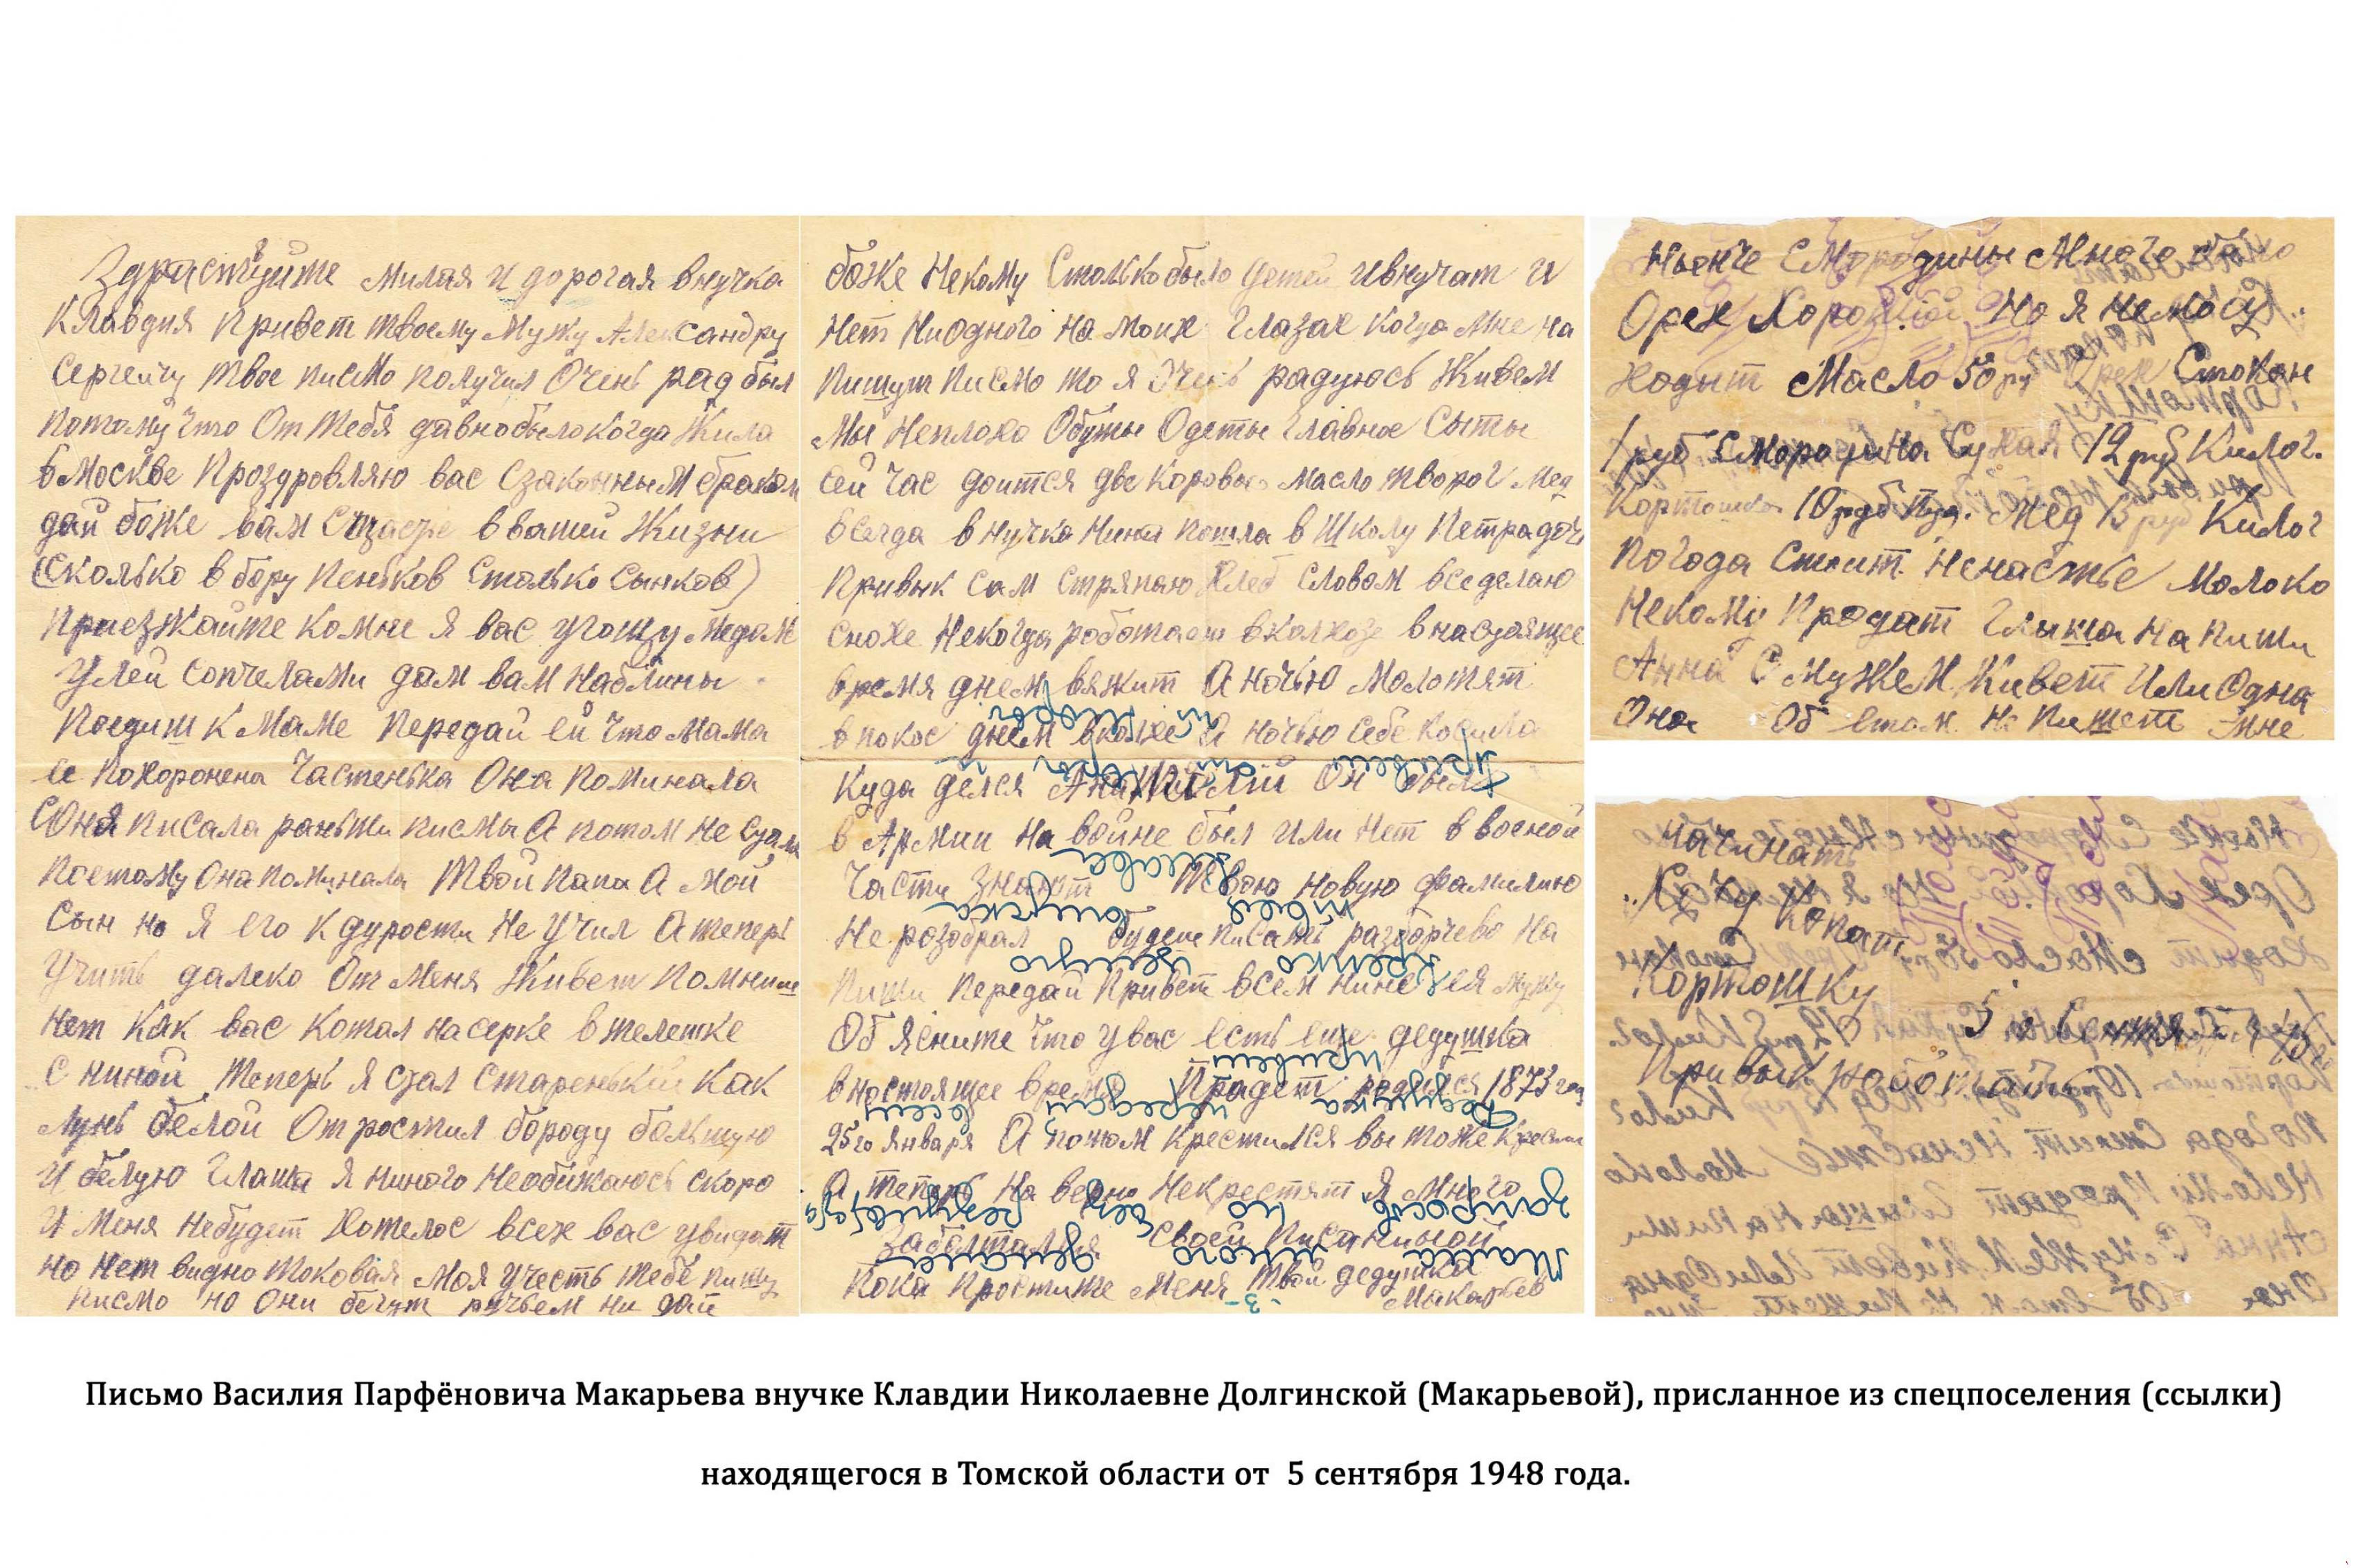 Здраствуйте милая и дорогая внучка
Клавдия Привет твоему Мужу Александру
Сергеичу твое писмо получил Очень рад был
потому что От тебя давно было когда жила
в Москве Проздровляю вас Сзаконным браком
дай боже вам Счастье в вашей Жизни
(Сколько в бору пеньков Столько Сынков)
Приезжайте комне Я вас угощу Медом
Улей Сопчелами дам вам наблины
Поедиш к Маме Передай ей что мама
ее похоронена Частенька Она поминала
Соня писала раньши писмы А потом не
поетому Она поминала Твой папа А мой
Сын но Я его к дурости не учил А теперь
учить далеко От меня Живет помниш
нет как вас котал на серке в телешке
С ниной теперь я стал Старенький как
лунь белой Отростил бороду большую
и белую Глаша я никого необижаюсь скоро
и Меня небудет Хотелос всех вас увидат
но нет видно токовая моя участь тебе пишу
писмо но Они бегут ручьем ни дай
боже Некому Столько было детей и внучат и
Нет Ниодного на моих глазах когда мне на
пишут писмо то я Очень радуюсь Живем
Мы Неплохо Обуты Одеты главное Сыты
Сей час доится две коровы масло творог Мед
всегда внучка Нина пошла в Школу
Привык Сам Стряпаю Хлеб Словом все делаю
снохе Некогда роботает вколхозе внастоящее
время днем вяжит А ночью Молотят
в покос днем А ночью Себе косила
Куда делся Анатолий Он был
в Армии На войне был или Нет в военой
Части Знают Твою новую фамилию
Не розобрал будеш писать разборчево На
пиши передай Привет всем Нине ея мужу
Об ясните что у вас есть еще дедушка
внастоящее время Прадет родился 1873 год
25го января А потом крестился вы тоже
А теперь на верно Некрестят Я много
Заболтался Своей писаниной
Пока простите меня твой дедушка
Макарьев
-3-
Привет
внучка
крепко целую
привет
дедушка передай всем
Ньенче Смородины Много было
Орех Хороший Но я не могу
ходит Масло 50 ру Орех Стокан
1 руб Смородина Сухая 12 руб Килог.
Кортошка 10 руб Пуд. Мед 15 руб Килог
погода Стоит Ненастье Молоко
Некому Продат Глаша На пиши
Анна С мужем Живет Или Одна
Она Об етом Не пишет мне
Начинать
Хочу Копат
Кортошку
5 го Сентября
Привык роботать
Письмо Василия Парфёновича Макарьева внучке Клавдии Николаевне Долгинской (Макарьевой), присланное из спецпоселения (ссылки)
находящегося в Томской области от 5 сентября 1948 года.